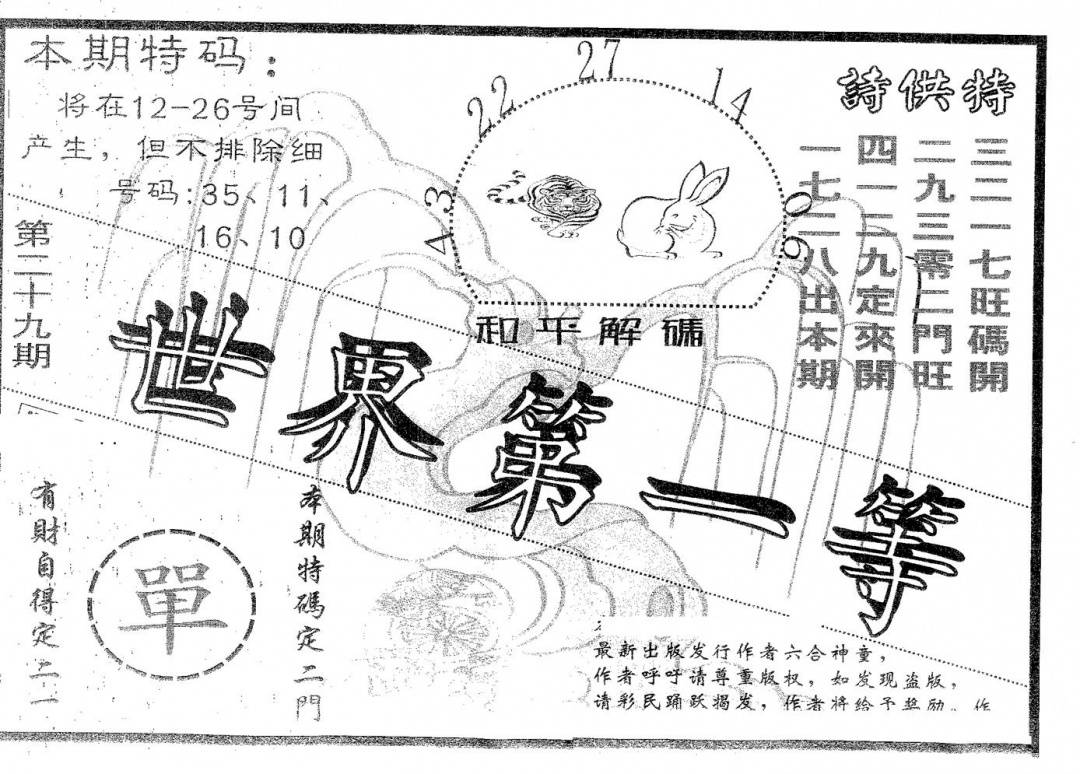 本期特码：
将在12-26号间
产生，但不排除细
号码:35、11、
16、10
第二十九期
43
22
27
14
09
和平解礦
詩供持
三二一七旺碼開
二九三零二門旺
四一二九定來開
一七二八出本期
世界第一等
本期特碼定二門
單
有財自得定二一
最新出版发行作者六合神童，
作者呼吁请尊重版权，如发现盗版，
请彩民踊跃揭发，作者将给予奖励。作